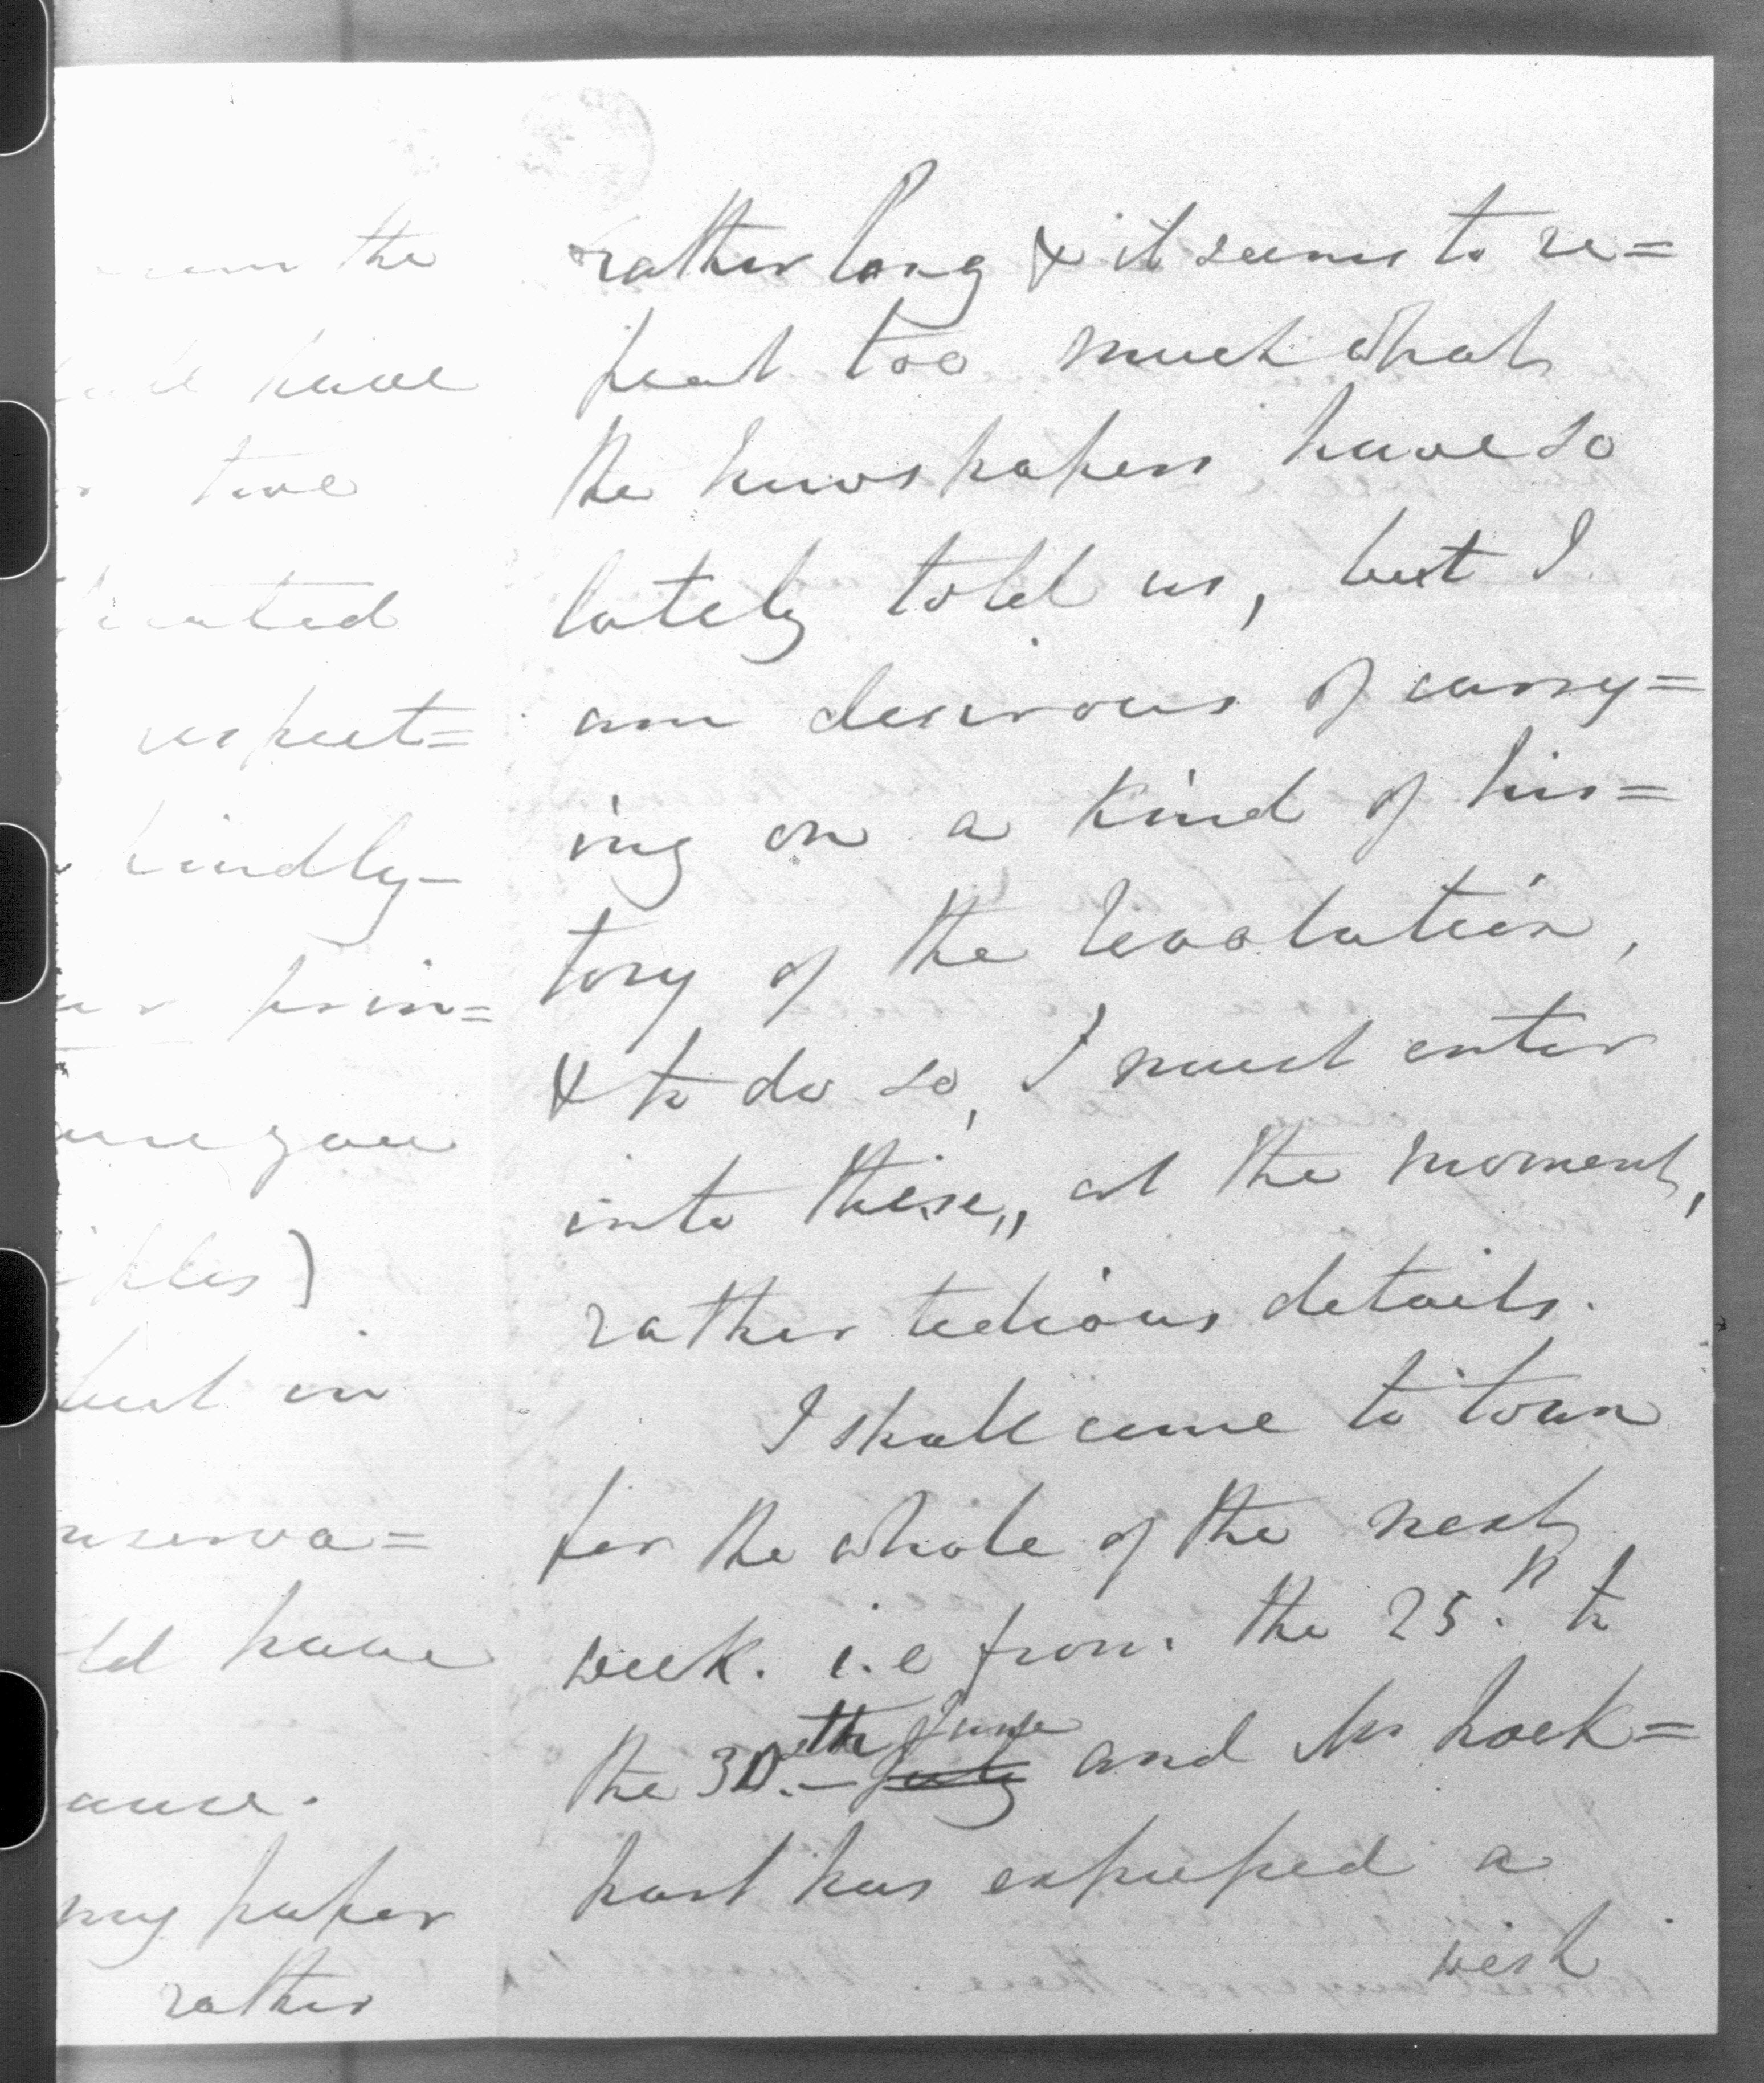 the
have
two
respect=
kindly
prin=
you
ples)
but in
nserva=
ld have
my paper
rather
rather long & it seems to re=
peat too much what
the newspapers have so
lately told us, but I
am desirous of carry=
ing on a kind of his=
tory of the Revolution,
& to do so, I must enter
into these,, at the moment,
rather tedious details.
I shall come to town
for the whole of the next
week. i.e from the 25.th to
the 30.th July June and Mr Lock=
hart has expressed a
wish